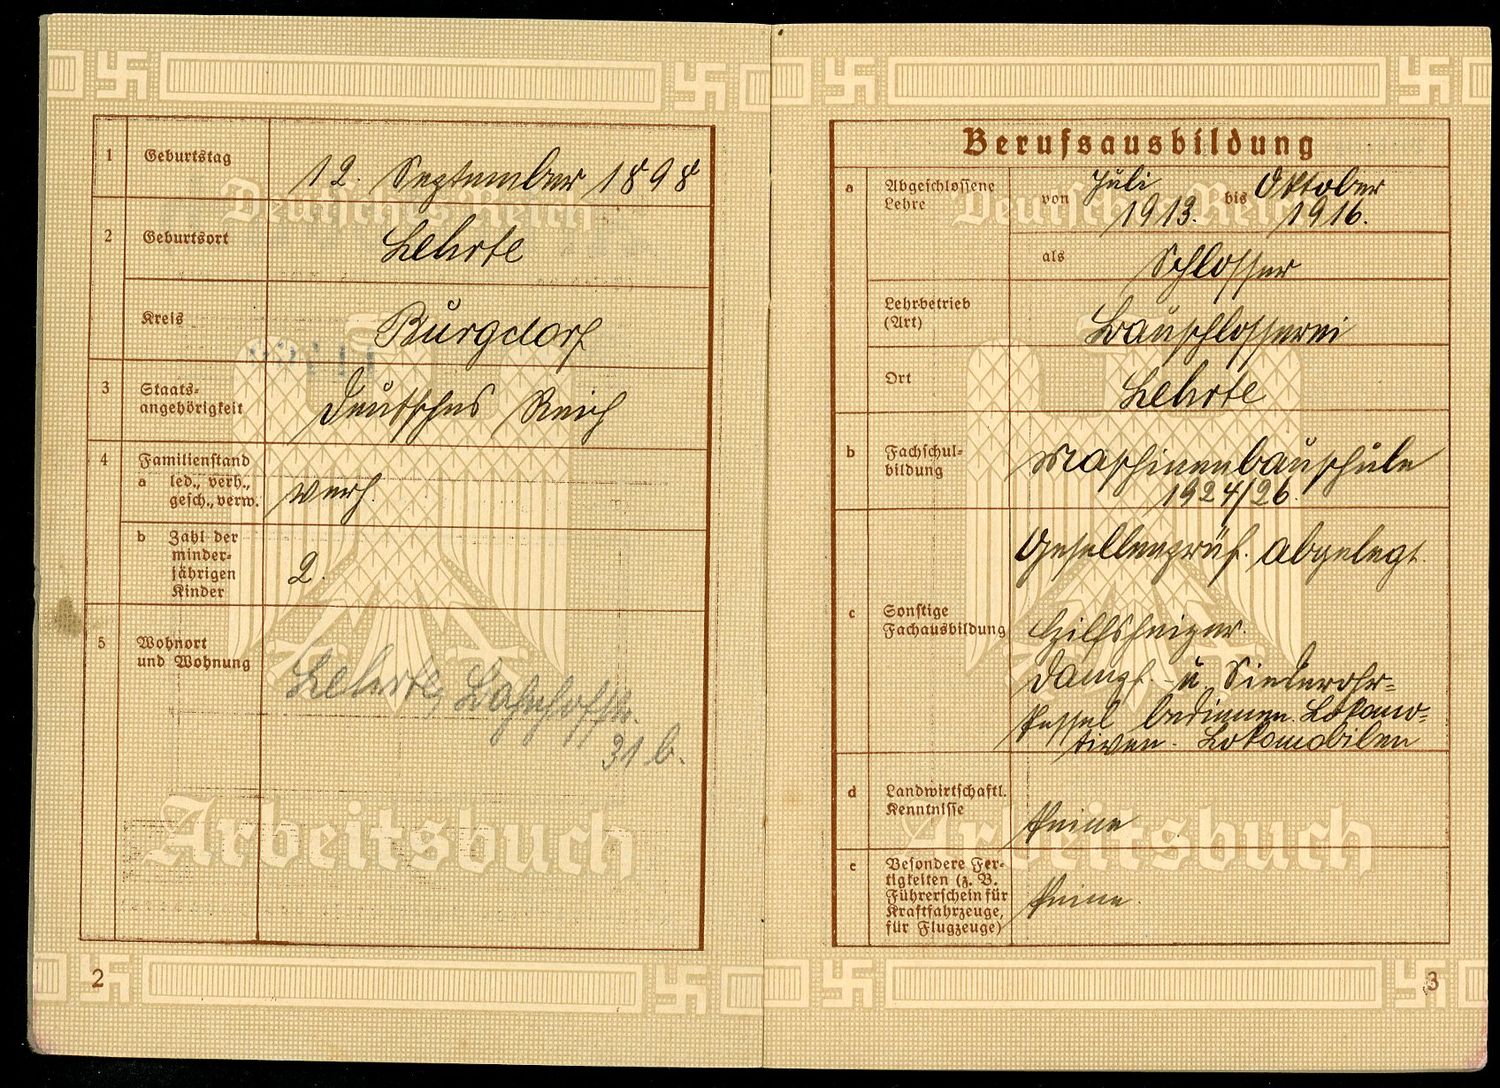 1 Geburtstag 12. September 1898
2 Geburtsort Lehrte
Kreis Burgdorf
3 Staats-
angehörigkeit Deutsches Reich
4 Familienstand
a led., verh.,
gesch., verw. verh.
b Zahl der
minder-
jährigen
Kinder 2.
5 Wohnort
und Wohnung Lehrte, Bahnhofstr.
31 b.
Deutsches Reich
Arbeitsbuch
2
Berufsausbildung
a Abgeschlossene
Lehre von Juli
1913. bis Oktober
1916.
als Schlosser
Lehrbetrieb
(Art) Bauschlosserei
Ort Lehrte
b Fachschul-
bildung Maschinenbauschule
1924/26.
Gesellenprüf. abgelegt.
c Sonstige
Fachausbildung Hilfsheizer.
Dampf- u. Siederohr-
kessel bedienen. Lokomo-
tiven. Lokomobilen
d Landwirtschaftl.
Kenntnisse Keine
e Besondere Fer-
tigkeiten (z. B.
Führerschein für
Kraftfahrzeuge,
für Flugzeuge) Keine.
Deutsches Reich
Arbeitsbuch
3